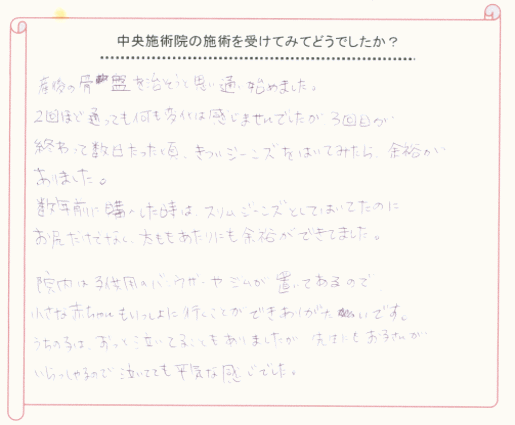 中央施術院の施術を受けてみてどうでしたか？
産後の骨盤を治そうと思い通い始めました。
2回ほど通っても何も変化は感じませんでしたが3回目が
終わって数日たった頃、きついジーンズをはいてみたら、余裕が
ありました。
数年前に購入した時は、スリムジーンズとしてはいてたのに
お尻だけでなく、太ももあたりにも余裕ができてました。
院内は子供用のバウンサーやジムが置いてあるので、
小さな赤ちゃんもいっしょに行くことができありがたいです。
うちの子は、ずっと泣いてることもありましたが 先生にもお子さんが
いらっしゃるので泣いてても平気な感じでした。